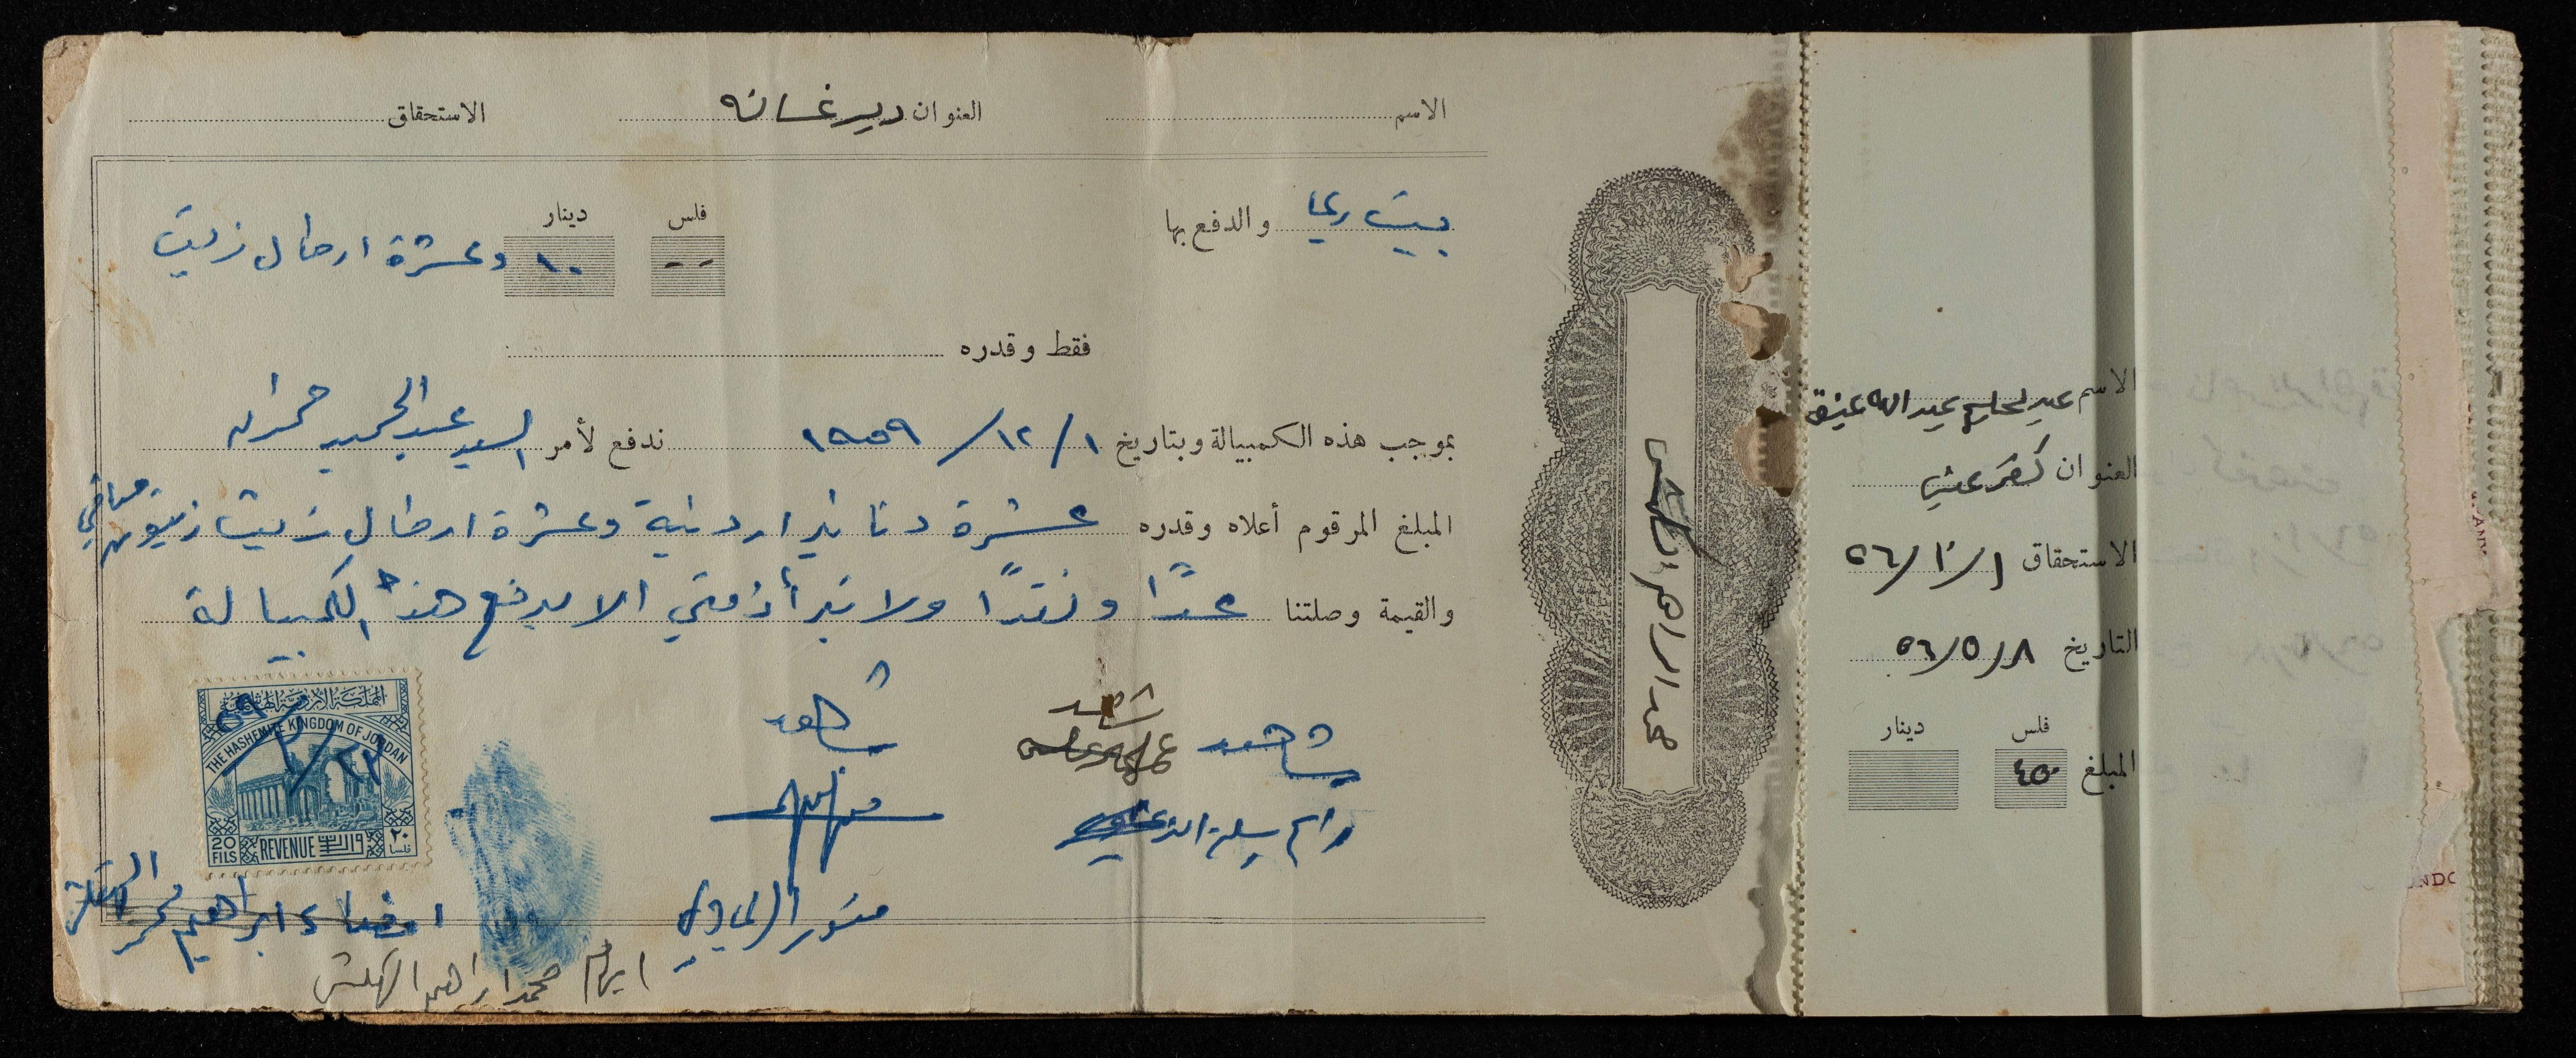 الاسم العنوان دير غسانه الاستحقاق
بيت ريما والدفع بها
فلس دينار
-- ١٠ وعشرة ارطال زيت
فقط وقدره
بموجب هذه الكمبيالة وبتاريخ ١/١٢/١٩٥٩ ندفع لأمر السيد عبد الحميد حمدان
المبلغ المرقوم أعلاه وقدره عشرة دنانير اردنية وعشرة ارطال زيت زيتون صافي
والقيمة وصلتنا عدًا ونقدًا ولا تبرأ ذمتي الا بدفع هذه الكمبيالة
شاهد
شاهد
شاهد
منور الريماوي
المملكة الأردنية الهاشمية
THE HASHEMITE KINGDOM OF JORDAN
٢٢/٢/٥٩
20 FILS REVENUE واردات ٢٠ فلسا
امضاء ابراهيم محمد
ابراهيم محمد ابراهيم
محمد ابراهيم
الاسم عبد الحليم عبد الله
العنوان كفر عين
الاستحقاق ١/١٠/٥٦
التاريخ ٨/٥/٥٦
فلس دينار
المبلغ ٤٥٠